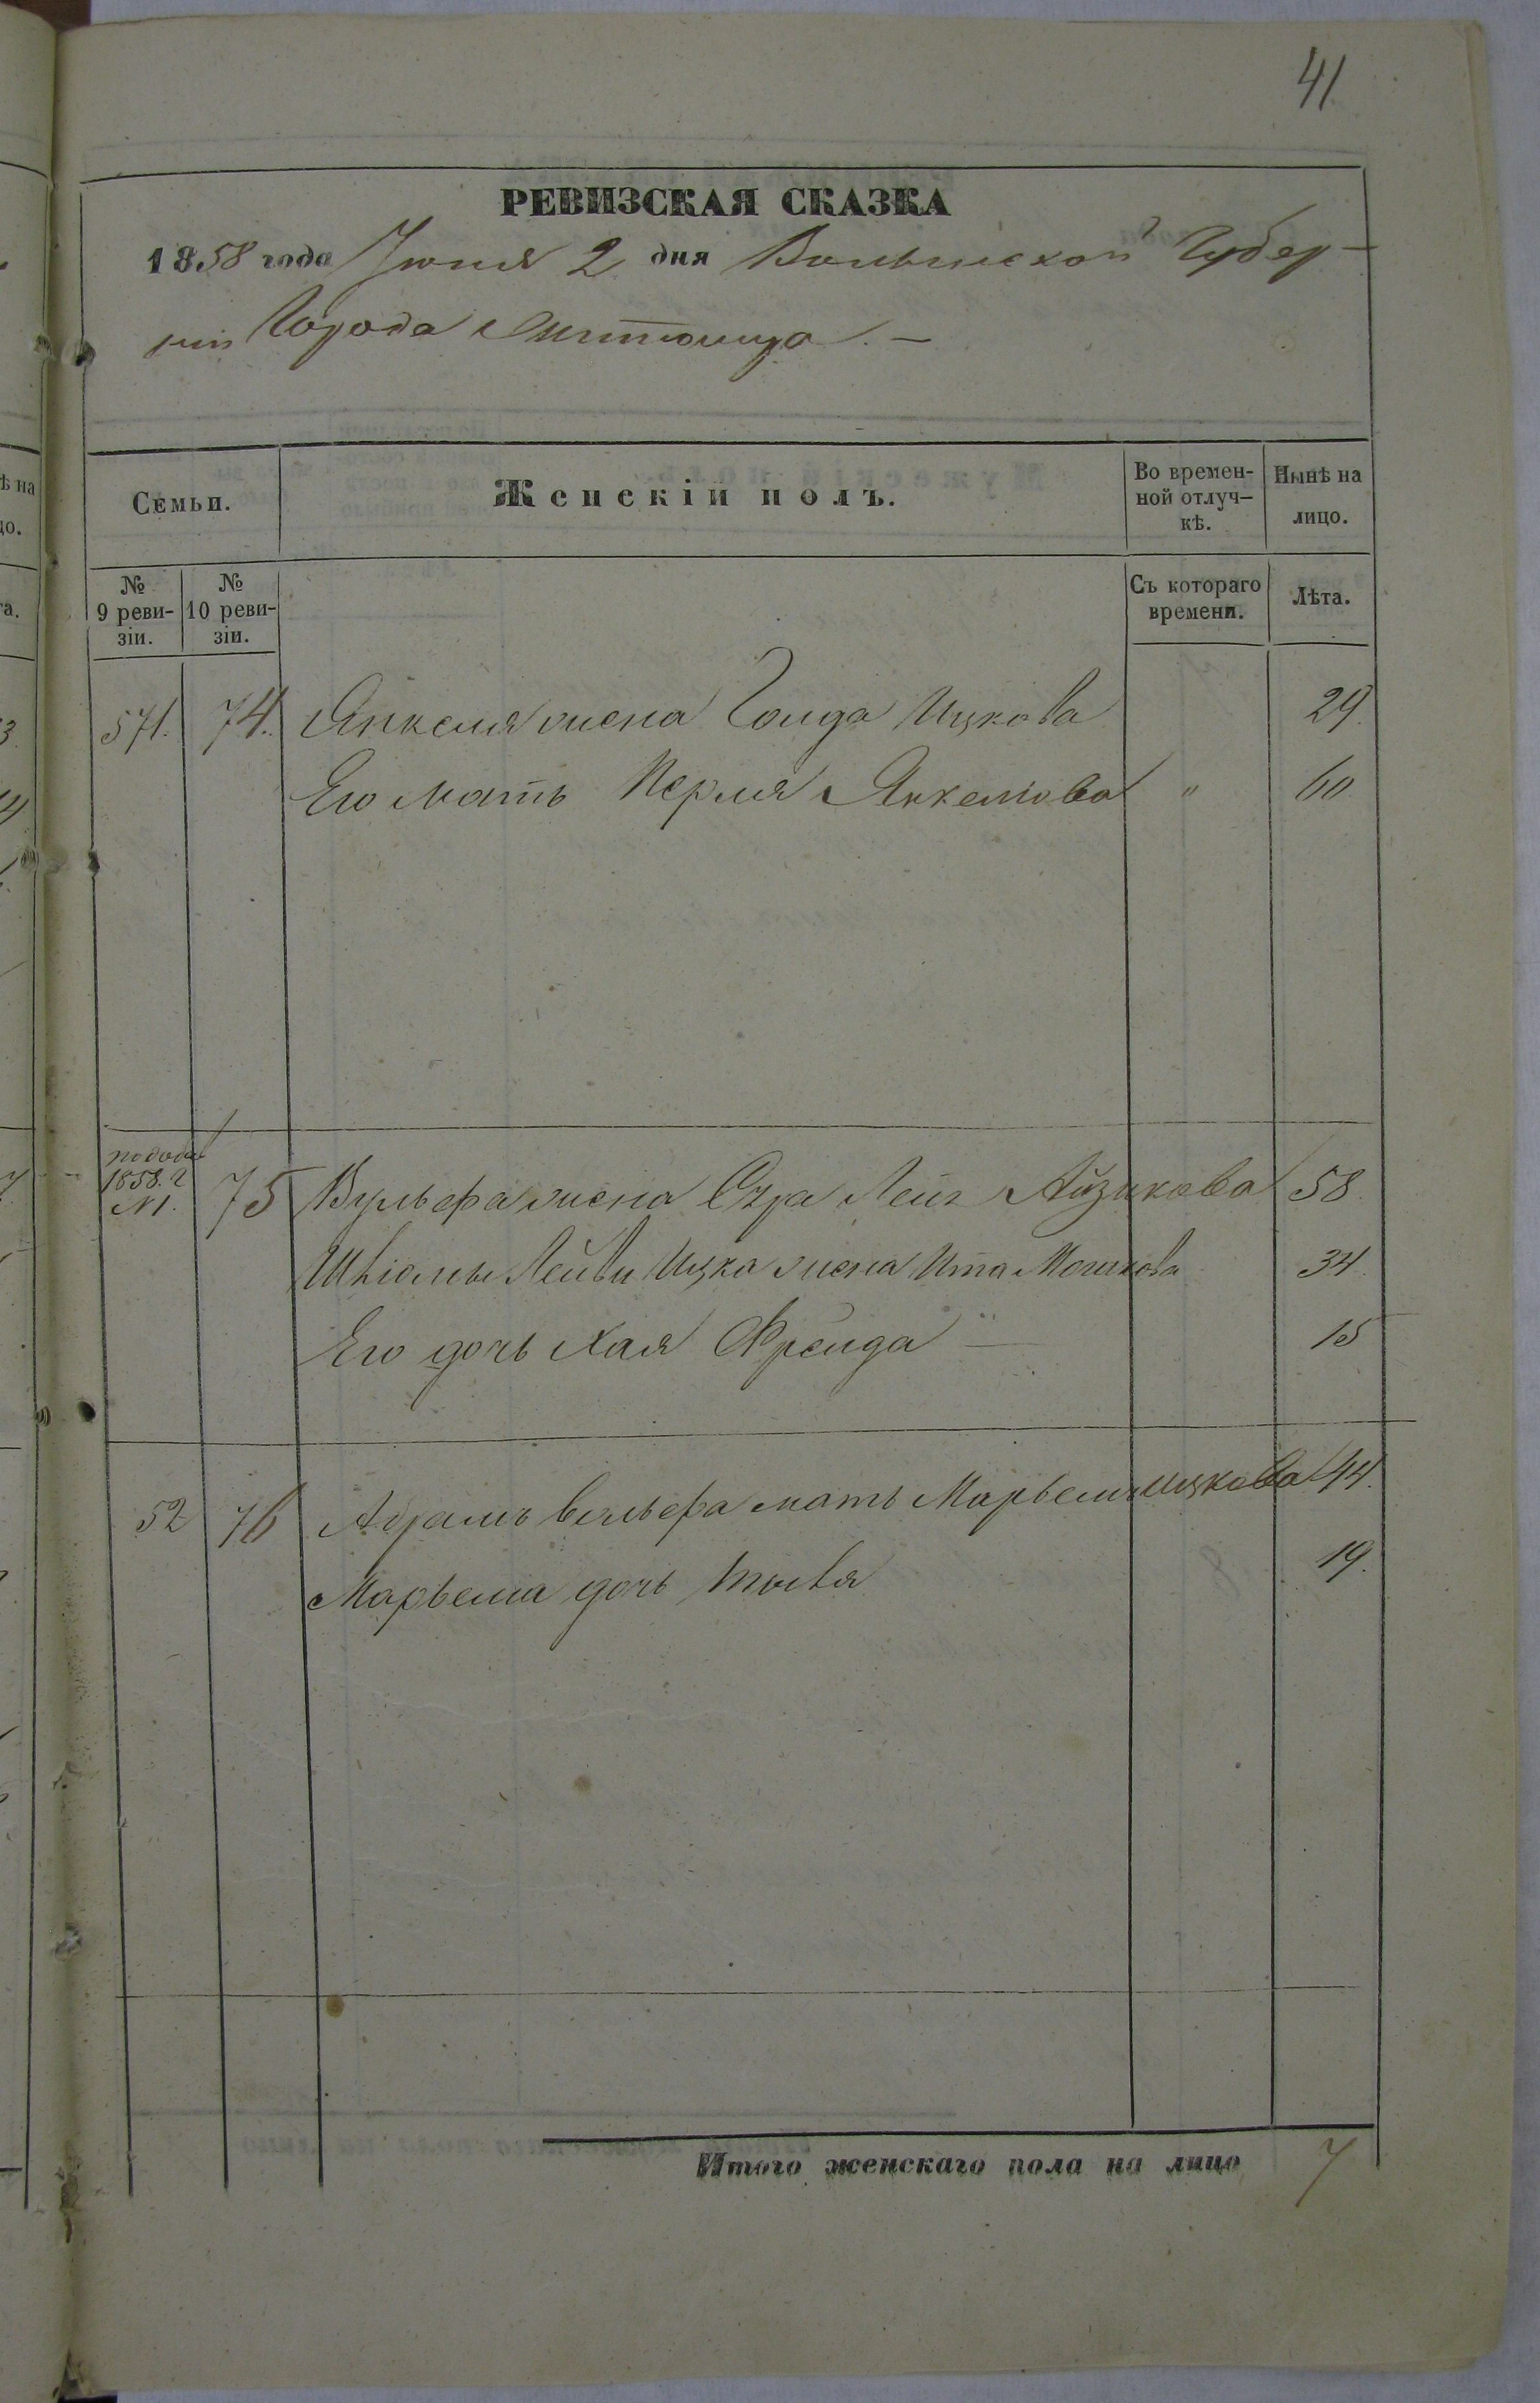 41
РЕВИЗСКАЯ СКАЗКА
1858 года Іюня 2 дня Волынской Губер-
ніи Города Житомира. —
Семьи.
Женскій полъ.
Во времен-
ной отлуч-
кѣ.
Нынѣ на
лицо.
№
9 реви-
зіи.
№
10 реви-
зіи.
Съ котораго
времени.
Лѣта.
571. 74. Янкеля жена Голда Ицкова 29.
Его мать Перля Янкеліова " 60
1858. г
№1. 75 Вульфа жена Сура Лея Айзикова 58.
Шліомы Лейви Ицка жена Ита Мошкова 34.
Его дочь Хая Фрейда — 15
52 76 Абрамъ Вольфа мать Марьемъ Ицкова 44.
Марьема дочь 19.
Итого женскаго пола на лицо 7